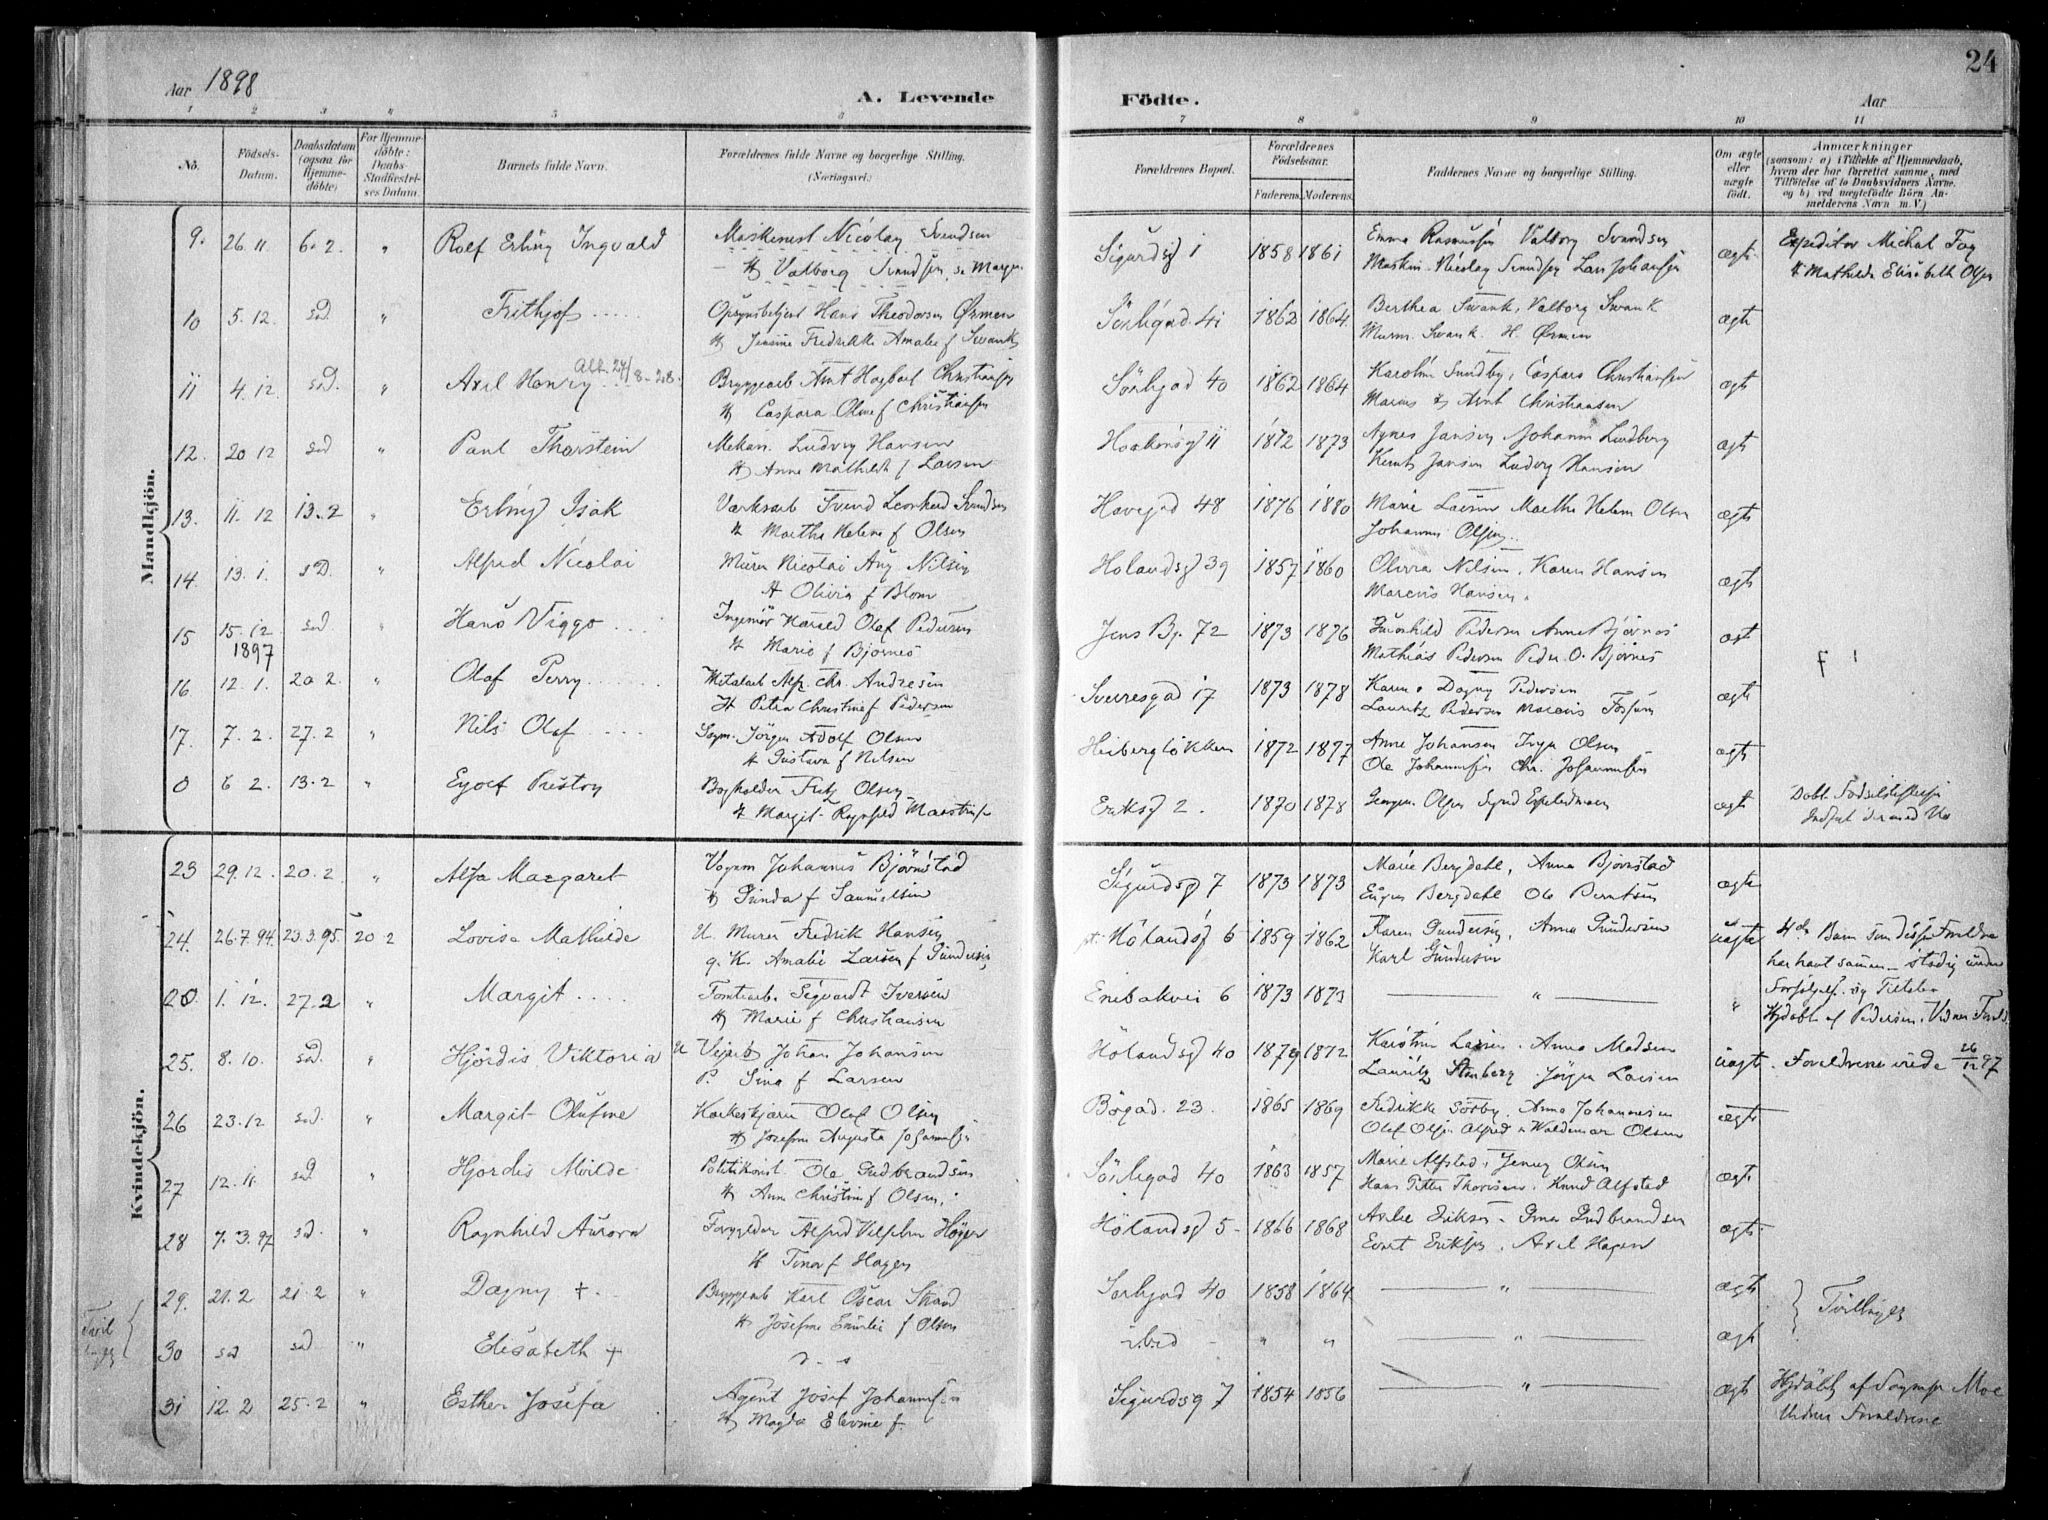 Aar 1898
A. Levende
Födte.
Aar
24
1 2 3 " 5 6 7 8 9 10 11
No.
Födsels-Datum.
Daabsdatum (ogsaa for Hjemme-döbte)
For Hjemme-döbte: Daabs-Stadfæstel-ses Datum.
Barnets fulde Navn.
Forældrenes fulde Navne og borgerlige Stilling.
(Næringsvei.)
Forældrenes Bopæl.
Forældrenes Födselsaar.
Faderens. Moderens.
Faddernes Navne og borgerlige Stilling.
Om ægte eller uægte født.
Anmærkninger
(saasom: a) i Tilfælde af Hjemmedaab,
hvem der har forrettet samme, med
Tilføielse af to Daabsvidners Navne.
og b) ved uægtefødte Börn An-
melderens Navn m. V.)
Mandkjön.
9. 26.11 6.2. " Rolf Erling Ingvald Maskinist Nicolay Svendsen Sigurdsg 1 1858 1861 Emma Rasmussen Valborg Svendsen ægte Expeditør Michal Fog
H Valborg Svendsen Maskin. Nicolay Svendsen Lars Johansen & Mathilde Elisabeth Olsen
10 5.12. sd " Frithjof Opsynsbetjent Hans Theodorsen Ørmen Sörligad 41 1862 1864 Berthea Swank, Valborg Swank ægte
H Jensine Fredrikke Amalie f Swank Murm. Swank. H. Ørmen
11 4.12. sd. " Axel Henry Bryggearb Arnt Hagbart Christiansen Sörligad 40 1862 1864 Karoline Sundby, Caspara Christiansen ægte
H Caspara Oline f Christiansen Marius & Arnt Christiansen
12. 20 12 sd " Paul Thorstein Mekan. Ludvig Hansen Haakonsg 11 1872 1873 Agnes Jansen Johanne Lundberg ægte
H Anne Mathilde f Larsen Jansen Ludvig Hansen
13. 11.12 13.2 " Erling Isak Værksarb Svend Leonhard Svendsen Havegad 48 1876 1880 Marie Larsen Marthe Helene Olsen ægte
H Martha Helene f Olsen Johannes Olsen
14. 13.1. sd. " Alfred Nicolai Murer Nicolai Aug Nilsen Holandsg 39 1857 1860 Olivia Nilsen. Karen Hansen ægte
H Olivia f Blom Marius Hansen.
15 15.12 1897 sd. " Hans Viggo Ingeniør Harald Olaf Pedersen Jens Bj. 72 1873 1876 Gunhild Pedersen Anne Bjørnes ægt
H Marie f Bjørnes Mathias Pedersen Peder O. Bjørnes
16. 12.1. 20 2. " Olaf Perry Metalarb Alf. Chr. Andresen Sverresgad 17 1873 1878 Karen & Dagny Pedersen ægte
H Petra Christine f Pedersen Lauritz Pedersen Marius Fossum
17. 7.2. 27.2 " Nils Olaf Sagm. Jörgen Adolf Olsen Heibergløkken 1872 1877 Anne Johansen Inga Olsen ægte
H Gustava f Nilsen Ole Johannessen Chr. Johannessen
0 6 2. 13.2 " Eyolf Preston Bogholder Fritz Olsen Eriksg 2. 1870 1878 ægte
H Margit Ragnhild
Kvindekjön.
23 29.12. 20.2. " Alfa Margaret Vognm Johannes Bjørnstad Sigurdsg 7 1873 1873 Marie Bergdahl, Anna Bjørnstad ægte
H Gunda f Samuelsen Eugen Bergdahl Ole Berntsen
24. 26.7.94. 23.3.95. 20 2 Lovise Mathilde U. Murer Fredrik Hansen Hölandsg 6 1859 1862 Karen Gundersen, Anna Gundersen uægte 4de Barn som disse Forældre
g. K. Amalie Larsen f Gundersen Karl Gundersen har havt sammen - stadig under
20. 1.12. 27.2 " Margit Tomtearb. Sigvardt Iversen Enebakvei 6 1873 1873 " "
H Marie f Christiansen Hjdøbt af Pedersen. Vidner: Foræld.
25. 8.10. sd " Hjördis Viktoria U Johan Johansen Hölandsg 40 1879 1872 Larsen. Anna Madsen uægt. Forældrene viede 26/12 97
P. Sina f Larsen Lauritz Stenberg. Jörgen Larsen
26 23.12 sd. " Margit Olufine Olaf Olsen Bögad. 23. 1865 1869 Fredrikke Sørby. Anna Johannesen ægte
H Josefine Augusta Johannessen Olaf Olsen Alfred & Waldemar Olsen
27 12.11. sd " Hjordis Milde Politikonst. Ole Gudbrandsen Sörligad 40 1863 1857 Marie Alfstad, Jenny Olsen ægte
H Anne Christine f Olsen. Hans Petter Thorsen. Knud Alfstad
28 7.3.97 sd. " Ragnhild Aurora Forgylder Alfred Vilhelm Hölandsg 5 1866 1868 ægte
H Tina f Hagen Evert Eriksen. Axel Hagen
29. 21.2 21.2 " Dagny + Bryggearb Karl Oscar Strand Sorligad 40 1858 1864 " ægte } Tvillinger
H Josefine Emilie f Olsen
30 sd sd. " Elisabeth + ibid " " " ægte
31 12.2 25.2 " Esther Josefa Agent Josef Johannesen Sigurdsg 7 1854 1856 " ægte Hjdöbt af Moe
H Magda Elevine f. Vidner Forældrene